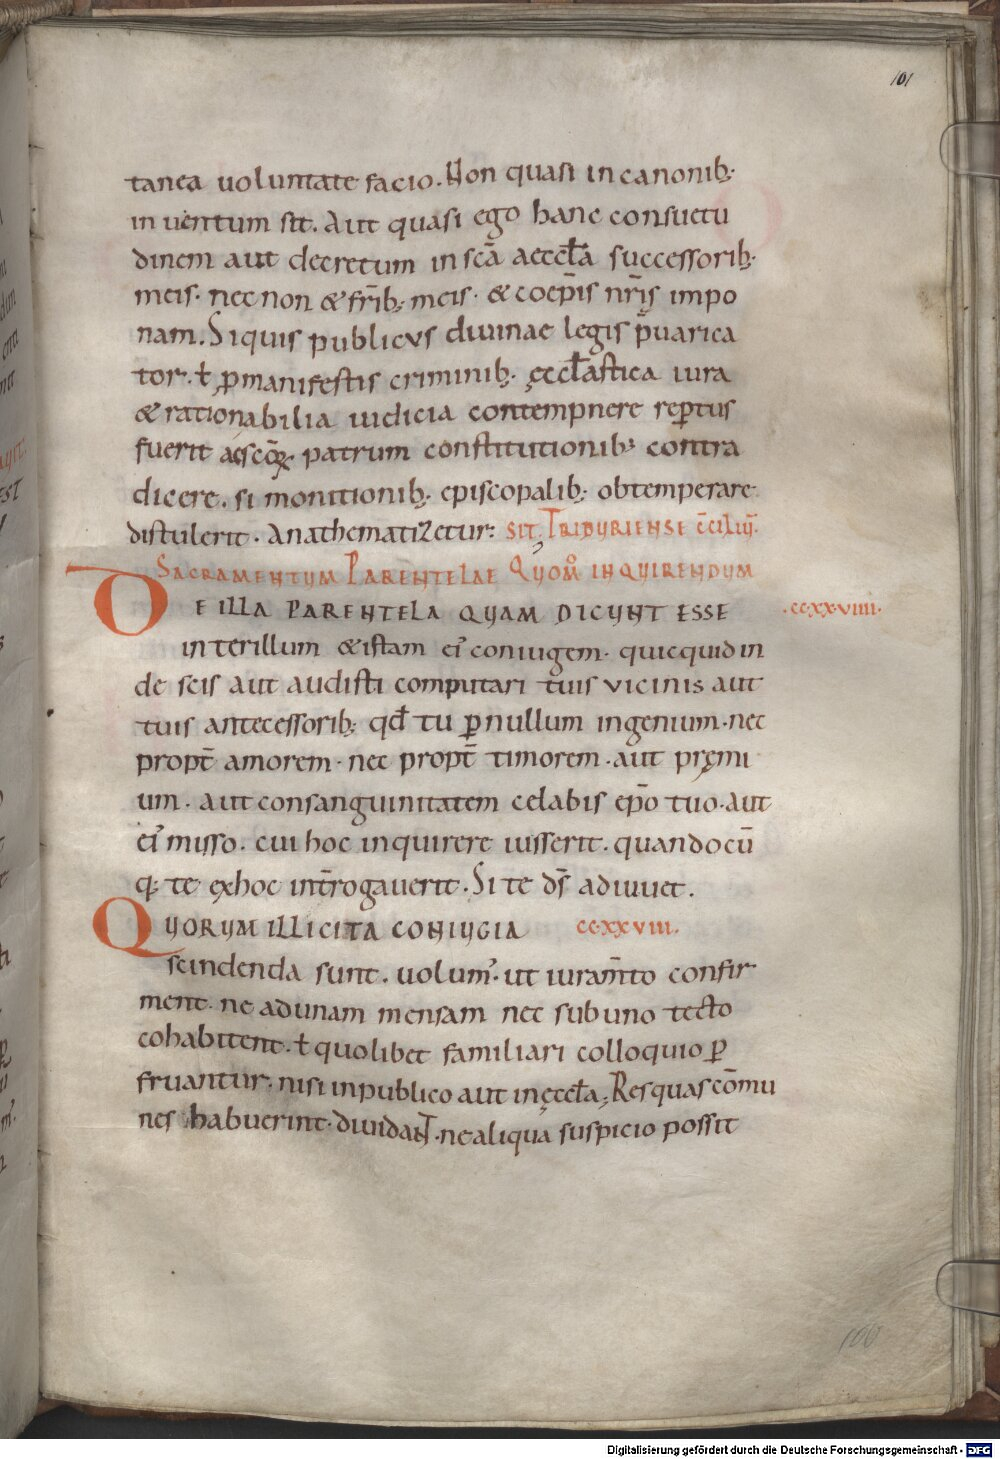 101
tanea uoluntate facio. Non quasi in canonib;
in uentum sit. Aut quasi ego hanc consuetu
dinem aut decretum in scā aeccta successorib;
meis. nec non & frīb; meis. & coep̄is nr̄is impo
nam. Si quis publicus diuinae legis p̄uarica
tor. ł ꝑ manifestis criminib; ęcctastica iura
& rationabilia iudicia contempnere rep̄tus
fuerit patrum constitutionib; contra
dicere. si monitionib; episcopalib; obtemperare
distulerit. Anathematizetur: SIT TRIBURIENSE C̄CILIŪ.
SACRAMENTUM PARENTELAE QUOM̊ INQUIRENDUM
DE ILLA PARENTELA QUAM DICUNT ESSE .ccxxviiii.
inter illum & istam ei᷒ coniugem. quicquid in
de scis aut audisti computari tuis uicinis aut
tuis antecessorib; qđ tu ꝑ nullum ingenium. nec
propt̄ amorem. nec propt̄ timorem. aut pręmi
um. aut consanguinitatem celabis ep̄o tuo. aut
ei᷒ misso. cui hoc inquirere iusserit. quandocū
q; te ex hoc int̄rogauerit. Si te dš adiuuet.
QUORUM ILLICITA CONIUGIA ccxxviii.
scindenda sunt. uolum᷒. ut iuram̄to confir
ment. ne ad unam mensam nec sub uno tecto
cohabitent. ł quolibet familiari colloquio ꝑ
fruantur. nisi in publico aut in ęccta; Res quas cōmu
nes habuerint. diuidaNT. ne aliqua suspicio possit
100
Digitalisierung gefördert durch die Deutsche Forschungsgemeinschaft - DFG